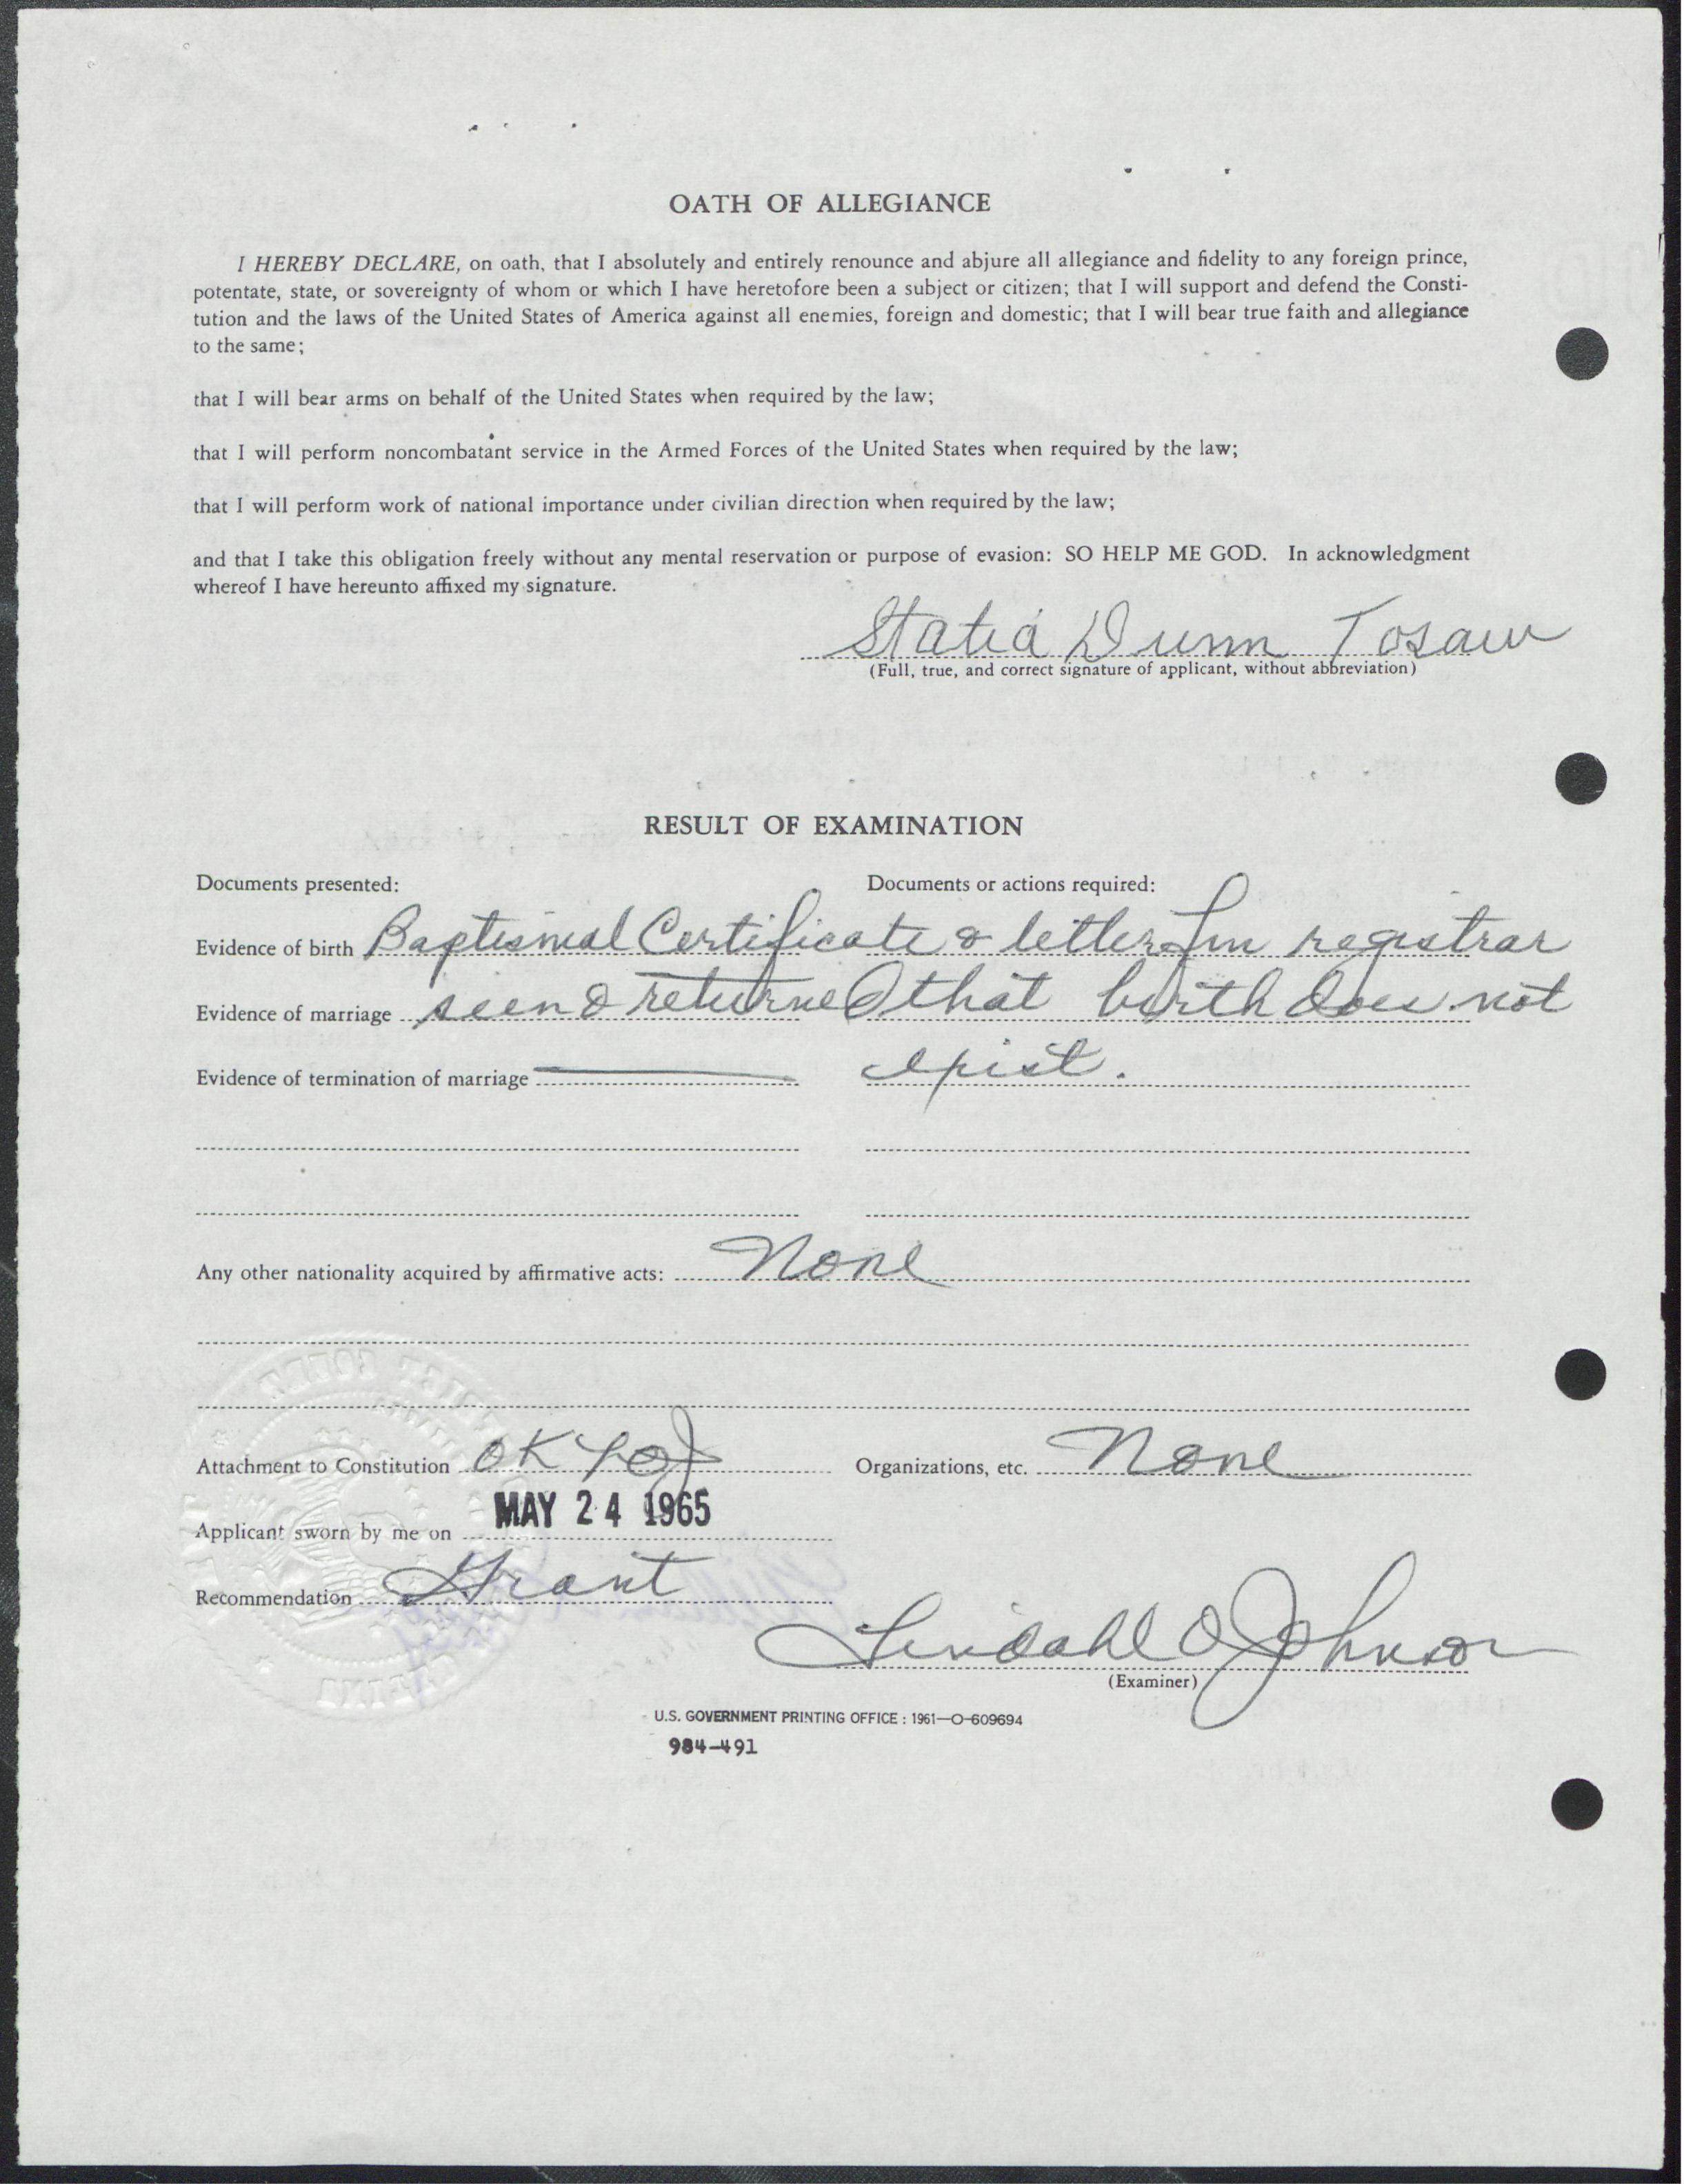 OATH OF ALLEGIANCE
I HEREBY DECLARE, on oath, that I absolutely and entirely renounce and abjure all allegiance and fidelity to any foreign prince,
potentate, state, or sovereignty of whom or which I have heretofore been a subject or citizen; that I will support and defend the Consti-
tution and the laws of the United States of America against all enemies, foreign and domestic; that I will bear true faith and allegiance
to the same;
that I will bear arms on behalf of the United States when required by the law;
that I will perform noncombatant service in the Armed Forces of the United States when required by the law;
that I will perform work of national importance under civilian direction when required by the law;
and that I take this obligation freely without any mental reservation or purpose of evasion: SO HELP ME GOD. In acknowledgment
whereof I have hereunto affixed my signature.
Statia Dunn Tosaw
(Full, true, and correct signature of applicant, without abbreviation)
RESULT OF EXAMINATION
Documents presented: Documents or actions required:
Evidence of birth Baptismal Certificate & letter fm registrar
Evidence of marriage seen & returned that birth does not
Evidence of termination of marriage exist.
Any other nationality acquired by affirmative acts: None
Attachment to Constitution OK LOJ Organizations, etc. None
Applicant sworn by me on MAY 24 1965
Recommendation Grant
Lindahl O Johnson
(Examiner)
U.S. GOVERNMENT PRINTING OFFICE : 1961—O-609694
984-491